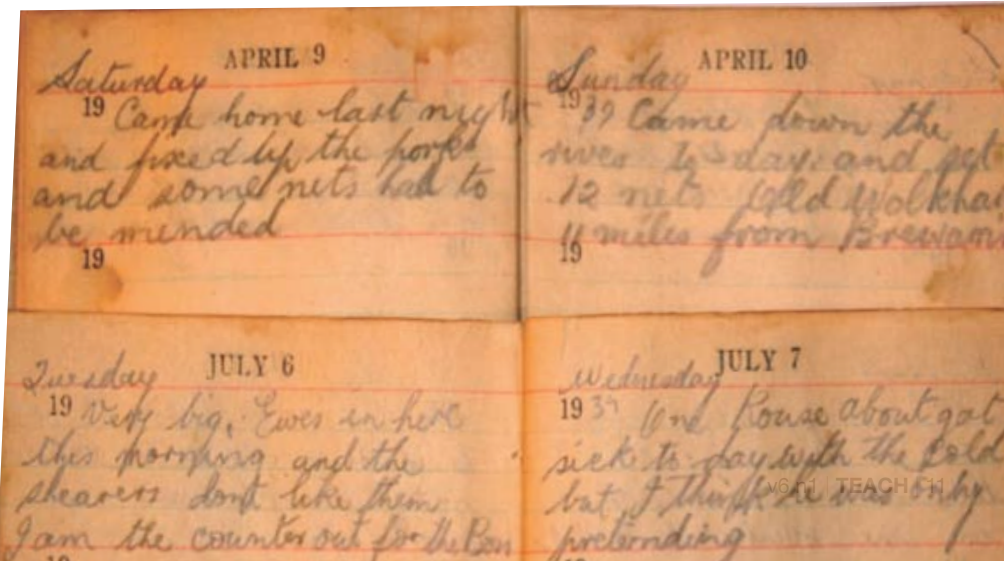 APRIL 9
Saturday
19 Came home last night
and fixed up the
and some nets had to
be minded
19
APRIL 10
Sunday
1939 Came down the
river to day and set
12 nets Old Wolkha
11 miles from Brewarr
19
JULY 6
Tuesday
19 Very big, Ewes in here
this morning and the
shearers dont like them
I am the counter out for the Boss
19
JULY 7
Wednesday
1937 One Rouse about got
sick to-day with the Cold
but I think he was only
preternding
v6 n1 | TEACH | 11